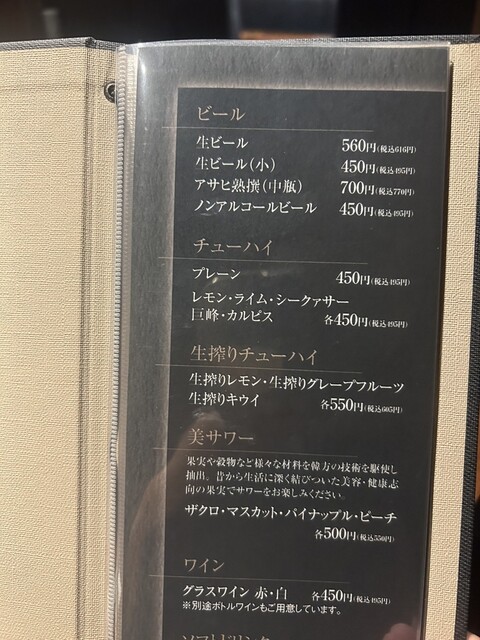 ビール
生ビール 560円(税込616円)
生ビール(小) 450円(税込495円)
アサヒ熟撰(中瓶) 700円(税込770円)
ノンアルコールビール 450円(税込495円)
チューハイ
プレーン 450円(税込495円)
レモン・ライム・シークァサー
巨峰・カルピス 各450円(税込495円)
生搾りチューハイ
生搾りレモン・生搾りグレープフルーツ
生搾りキウイ 各550円(税込605円)
美サワー
果実や穀物など様々な材料を韓方の技術を駆使し
抽出。昔から生活に深く結びついた美容・健康志
向の果実でサワーをお楽しみください。
ザクロ・マスカット・パイナップル・ピーチ
各500円(税込550円)
ワイン
グラスワイン 赤・白 各450円(税込495円)
※別途ボトルワインもご用意しています。
ソフトドリンク